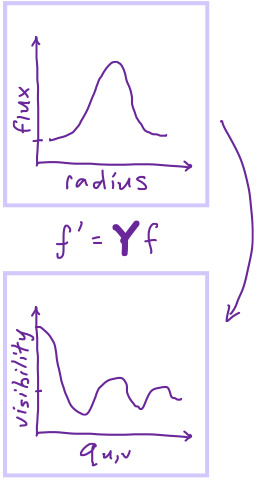 flux
radius
f' = Y f
visibility
qu,v